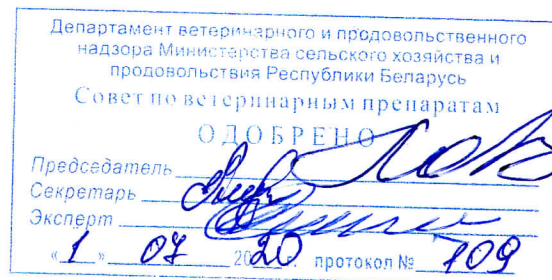 Департамент ветеринарного и продовольственного
надзора Министерства сельского хозяйства и
продовольствия Республики Беларусь
Совет по ветеринарным препаратам
ОДОБРЕНО
Председатель
Секретарь
Эксперт
«1» 07 2020 протокол № 109